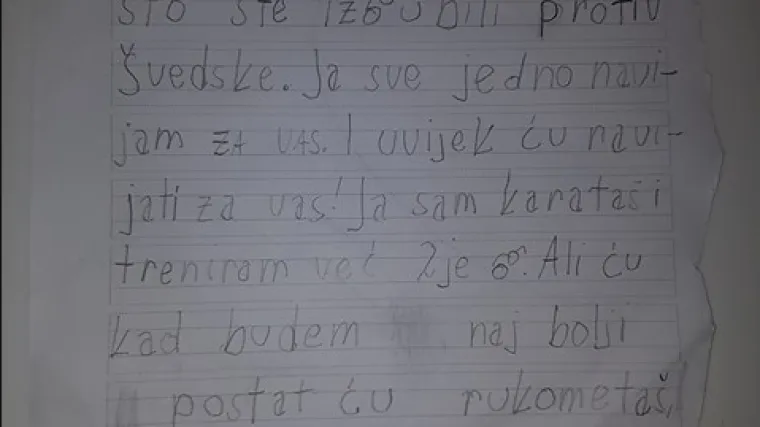 što ste izgubili protiv
Švedske. Ja sve jedno navi-
jam ZA VAS. I uvijek ću navi-
jati za vas! Ja sam karataš i
treniram već 2je god. Ali ću
kad budem naj bolji
postat ću rukometaš,